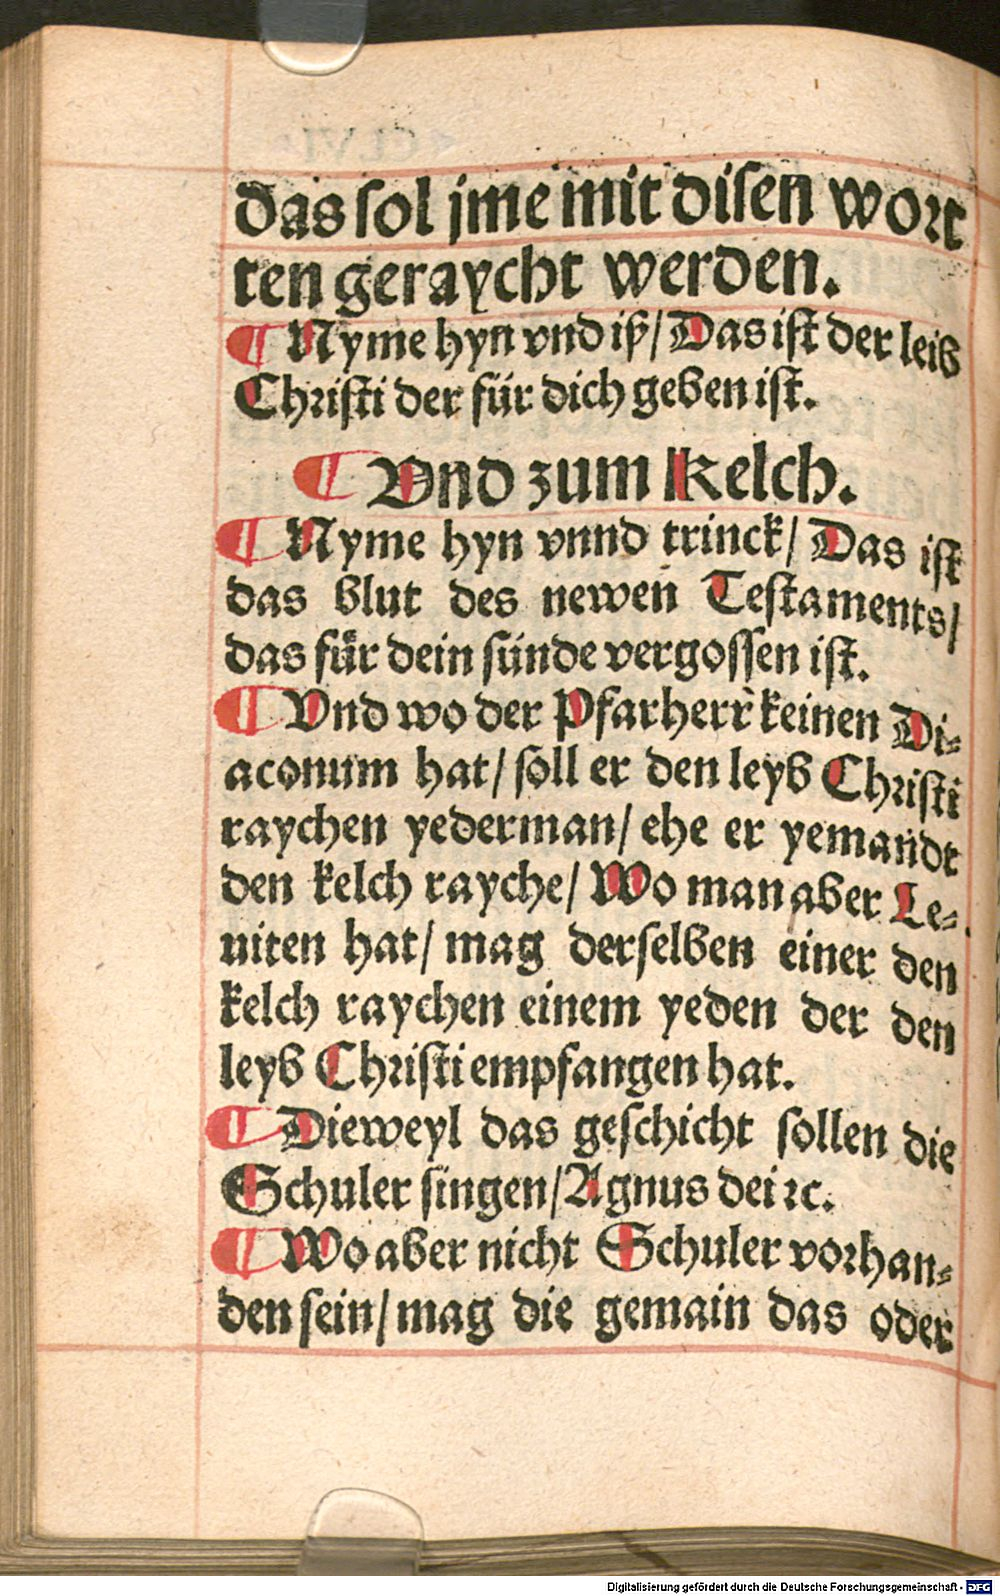 das sol jme mit disen wort
ten geraycht werden.
¶ Nyme hyn vnd iß/ Das ist der leib
Christi der für dich geben ist.
¶ Vnd zum Kelch.
¶ Nyme hyn vnnd trinck/ Das ist
das blut des newen Testaments/
das für dein sünde vergossen ist.
¶ Vnd wo der Pfarherr keinen Di⸗
aconum hat/ soll er den leyb Christi
raychen yederman/ ehe er yemandt
den kelch rayche/ Wo man aber Le⸗
uiten hat/ mag derselben einer den
kelch raychen einem yeden der den
leyb Christi empfangen hat.
¶ Dieweyl das geschicht sollen die
Schuler singen/ Agnus dei ꝛc.
¶ Wo aber nicht Schuler vorhan⸗
den sein/ mag die gemain das oder
Digitalisierung gefördert durch die Deutsche Forschungsgemeinschaft - DFG